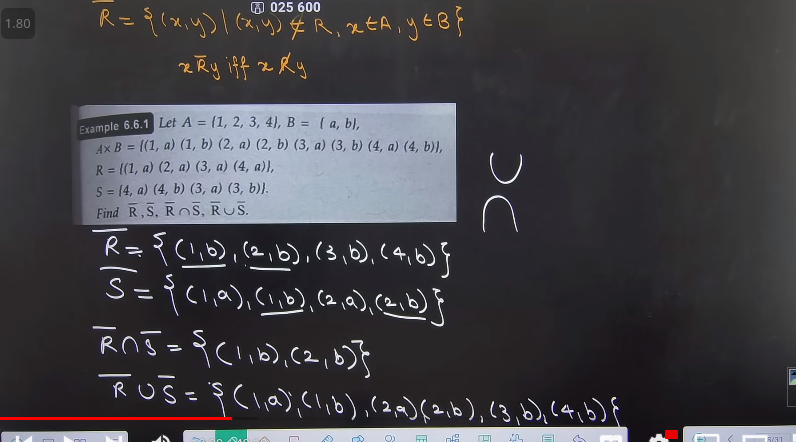 025 600
1.80
R̅ = {(x,y) | (x,y) ∉ R, x∈A, y∈B}
x R̅ y iff x R̸ y
Example 6.6.1 Let A = {1, 2, 3, 4}, B = { a, b},
A× B = {(1, a) (1, b) (2, a) (2, b) (3, a) (3, b) (4, a) (4, b)},
R = {(1, a) (2, a) (3, a) (4, a)},
S = {4, a) (4, b) (3, a) (3, b)}.
Find R̅, S̅, R̅ ∩ S̅, R̅ ∪ S̅.
∪
∩
R̅ = {(1,b), (2,b), (3,b), (4,b)}
S̅ = {(1,a), (1,b), (2,a), (2,b)}
R̅ ∩ S̅ = {(1,b), (2,b)}
R̅ ∪ S̅ = {(1,a), (1,b), (2,a) (2,b), (3,b), (4,b)}